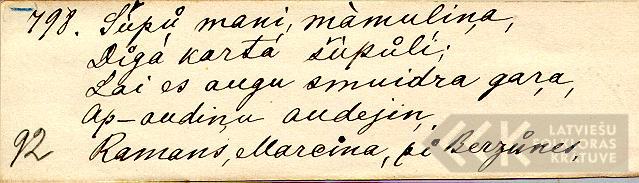 798. Šūpů mani, màmuliņa,
Dīgá kartá šūpůlí;
Lai es augu smuidra gaŗa,
Ap-audiņu audejiņ,
92 Ramans, Marciņa, pi Berzůnes,
LATVIEŠU
FOLKLORAS
KRĀTUVE